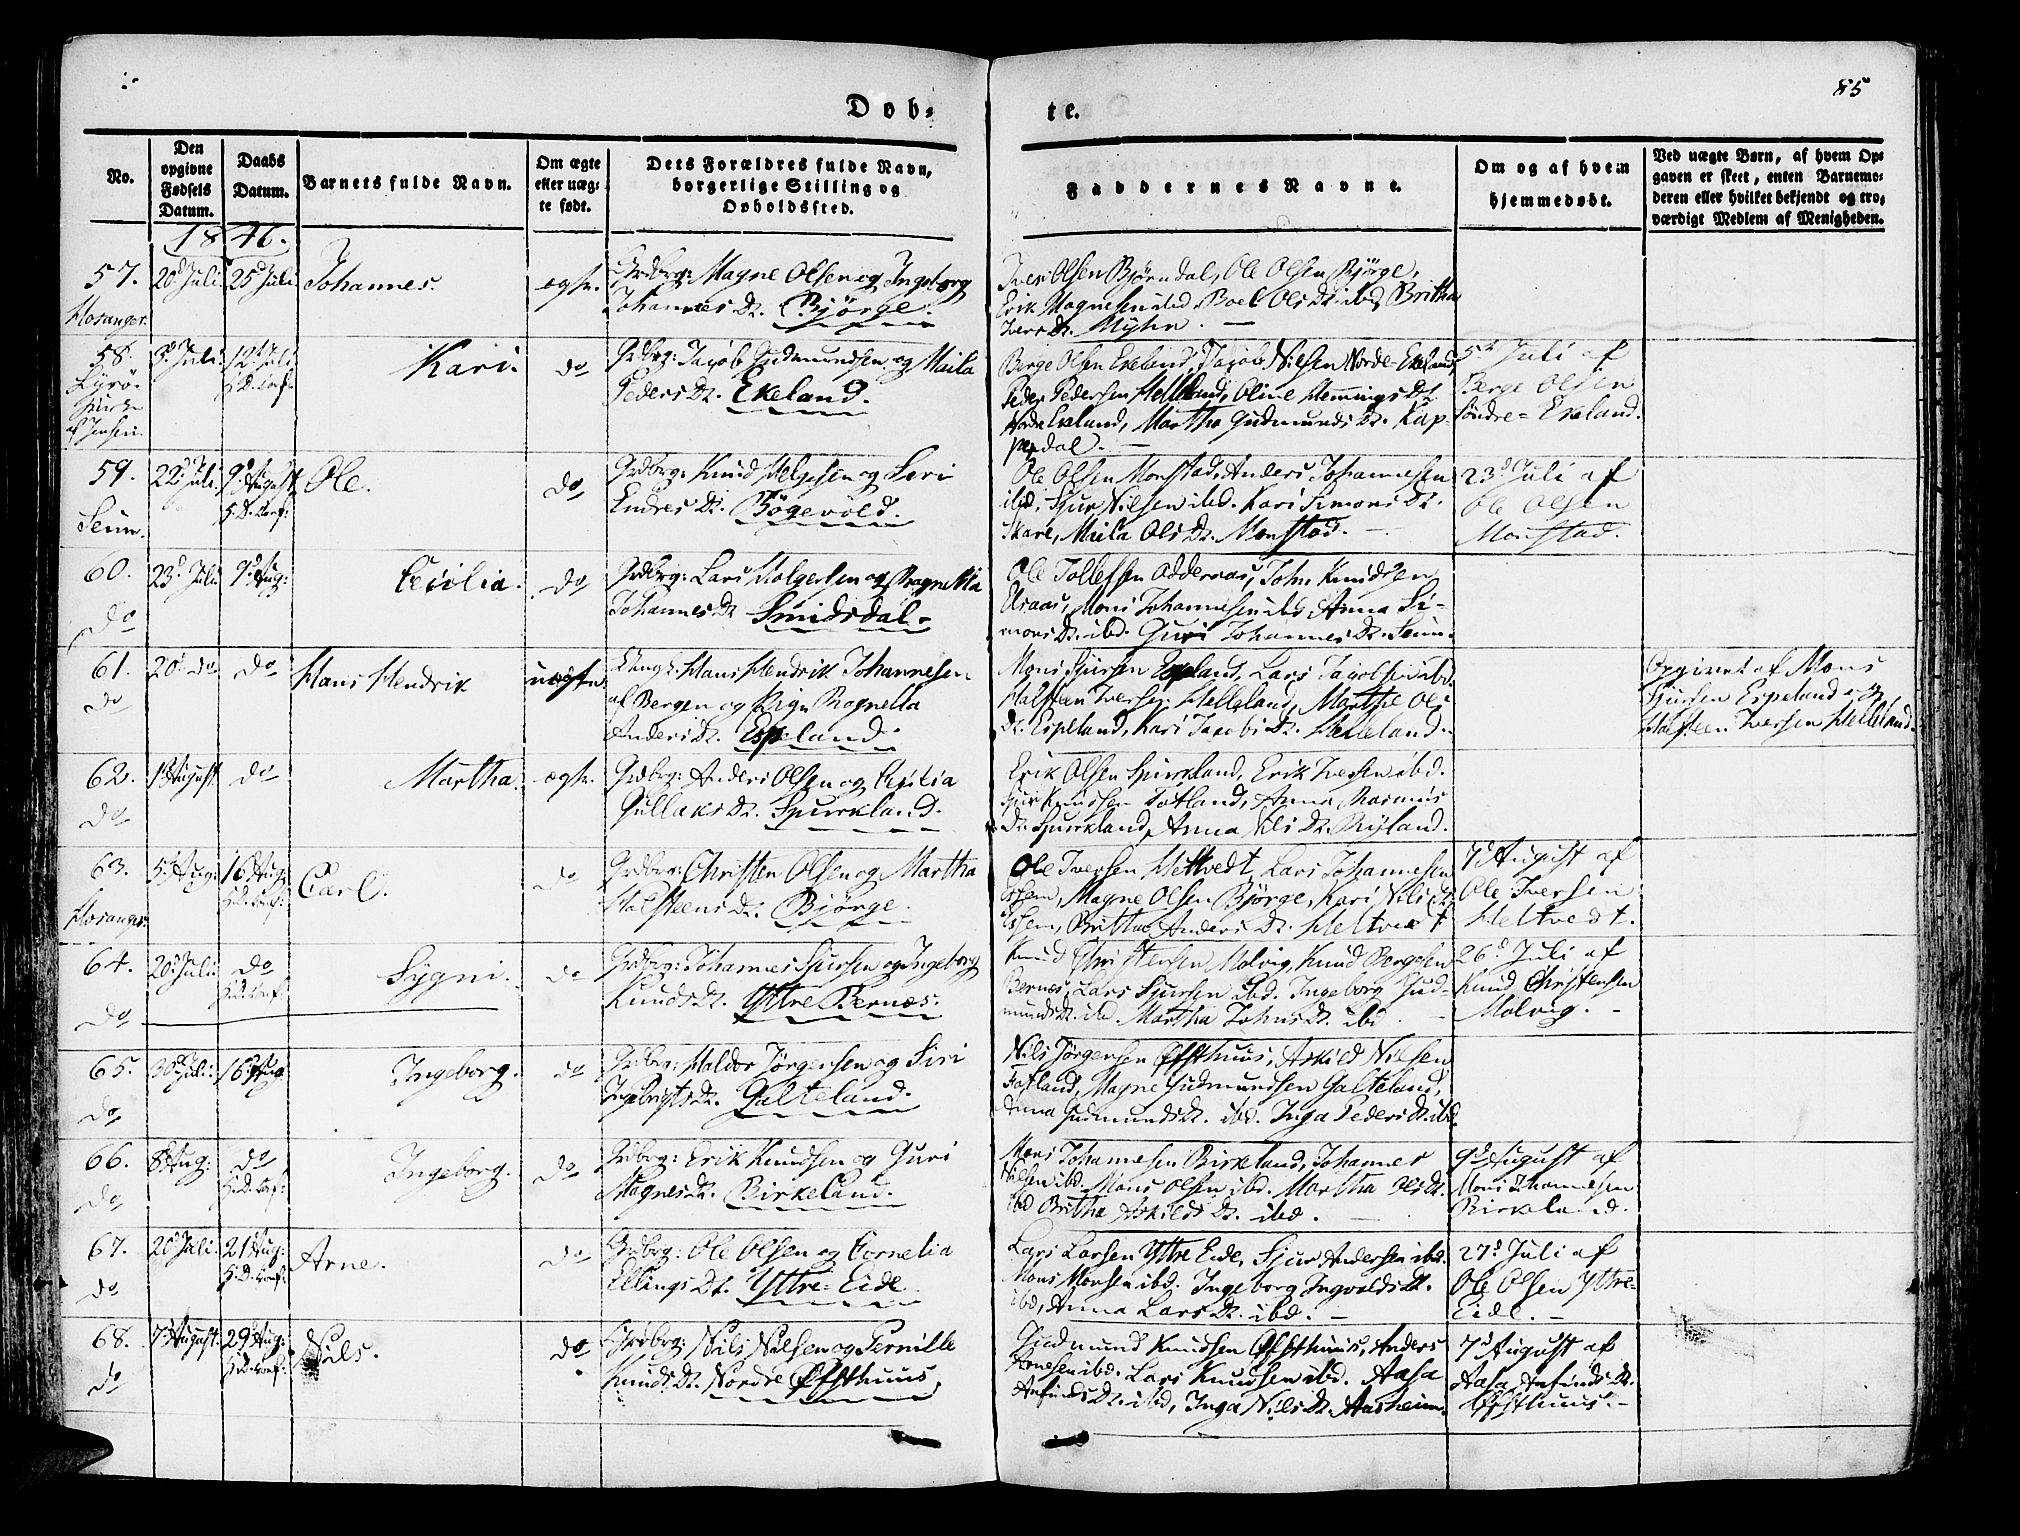 85
Døb-
te.
No.
Den opgivne Fødsels Datum.
Daabs Datum.
Barnets fulde Navn.
Om ægte eller uæg-te født.
Dets Forældres fulde Navn, borgerlige Stilling og Opholdssted.
Faddernes Navne.
Om og af hvem hjemmedøbt.
Ved uægte Børn, af hvem Op-gaven er skeet, enten Barnemo-deren eller hvilket bekjendt og tro-værdigt Medlem af Menigheden.
1846.
57.
Hosanger.
20d Juli
25 Juli
Johannes.
ægte.
Grdbrg: Magne Olsen og Ingeborg
Johannes Dr. Bjørge.
Iver Olsen Bjørndal, Ole Olsen Bjørge,
Erik Magnesen ibd. Boel Ols Dr. ibd, Britha
Ivers Dr. Myhr. —
58.
Juli
12 Juli
H.D. Conf:
Kari.
do
Grdbrg: Jacob Gudmundsen og Maila
Peders Dr. Ekeland.
Berge Olsen Ekeland, Jacob Nilsen Nordre Ekeland,
Peder Pedersen Helleland, Oline Hemmings Dr.
Nordre Ekeland, Martha Gudmunds Dr. Kap-
pedal. —
5d Juli af
Berge Olsen
Søndre-Ekeland.
59.
Seim.
22d Juli
9d August
H.D. Conf:
Ole.
do
Grdbrg: Knud Helgesen og Siri
Endres Dr. Bøgevold.
Ole Olsen Monstad, Anders Johannesen
ibd, Sjur Nilsen ibd. Kari Simons Dr.
Skare, Maila Ols Dr. Monstad. —
23d Juli af
Ole Olsen
Monstad.
60.
do
23d Juli
9d Aug:
Cecilia.
do
Grdbrg: Lars Holgersen og Ragnetha
Johannes Dr. Smidsdal.
Ole Tollefsen Oddernæs, John Knudsen
Elsaas, Mons Johannesen ibd, Anna Si-
mons Dr. ibd. Guri Johannes Dr. Seim.
61.
do
20d do
do
Hans Hendrik
uægte
Ungk: Hans Hendrik Johannesen
af Bergen og Pige Ragnetha
Anders Dr. Espeland.
Mons Sjursen Espeland, Lars Jacobsen ibd.
Halsteen Iversen Helleland, Marthe Ols
Dr. Espeland, Kari Jacobs Dr. Helleland.
Opgivet af Mons
Sjursen Espeland og
Halsteen Iversen Helleland.
62.
do
1d August
do
Martha.
ægte.
Grdbrg: Anders Olsen og Cecilia
Gullaks Dr. Spurkland.
Erik Olsen Spurkland, Erik Iversen ibd.
Sjur Knudsen Totland, Anna Rasmus
Dr. Spurkland, Anna Nils Dr. Byland.
63.
Hosanger.
5d Aug:
16d Aug:
H.D. Conf:
Carl.
do
Grdbrg: Christen Olsen og Martha
Halsteens Dr. Bjørge.
Ole Iversen Heltvedt, Lars Johannesen
Essem, Magne Olsen Bjørge, Kari Nils Dr.
Essem, Britha Anders Dr. Heltvedt
7d August af
Ole Iversen
Heltvedt.
64.
do
20d Juli
do
H.D. Conf:
Sygni.
do
Grdbrg: Johannes Sjursen og Ingeborg
Knuds Dr. Yttre Bernæs.
Knud Christensen Molvig, Knud Bergesen
Bernæs, Lars Sjursen ibd. Ingeborg Gud-
munds Dr. ibd. Martha Johns Dr. ibd
26d Juli af
Knud Christensen
Molvig. -
65.
do
30d Juli
16d Aug
Ingeborg.
do
Grdbrg: Haldor Jørgensen og Siri
Ingebrigts Dr. Galteland.
Nils Jørgensen Øfsthuus, Askild Nilsen
Fatland, Magne Gudmundsen Galteland,
Anna Gudmunds Dr. ibd. Inga Peders Dr. ibd.
66.
do
8d Aug:
do
H.D. Conf:
Ingeborg.
do
Grdbrg: Erik Knudsen og Guri
Magnes Dr. Birkeland.
Mons Johannesen Birkeland, Johannes
Nilsen ibd. Mons Olsen ibd. Martha Ols Dr.
ibd Britha Askilds Dr. ibd. —
9d August af
Mons Johannesen
Birkeland.
67.
do
20d Juli
21d Aug:
H.D. Conf:
Arne.
do
Grdbrg: Ole Olsen og Cornelia
Ellings Dr. Yttre-Eide
Lars Larsen Yttre Eide, Sjur Andersen ibd.
Mons Monsen ibd. Ingeborg Ingvolds Dr.
ibd, Anna Lars Dr. ibd. —
27d Juli af
Ole Olsen Yttre-
Eide. -
68.
do
7d August
29d Aug:
H.D. Conf:
Nils.
do
Grdbrg: Nils Nilsen og Pernille
Knuds Dr. Nordre Øfsthuus
Gudmund Knudsen Øfsthuus, Anders
Arnesen ibd. Lars Knudsen ibd. Aasa
Anfinds Dr. ibd, Inga Nils Dr. Aasheim.
7d August af
Aasa Anfinds Dr.
Øfsthuus. -